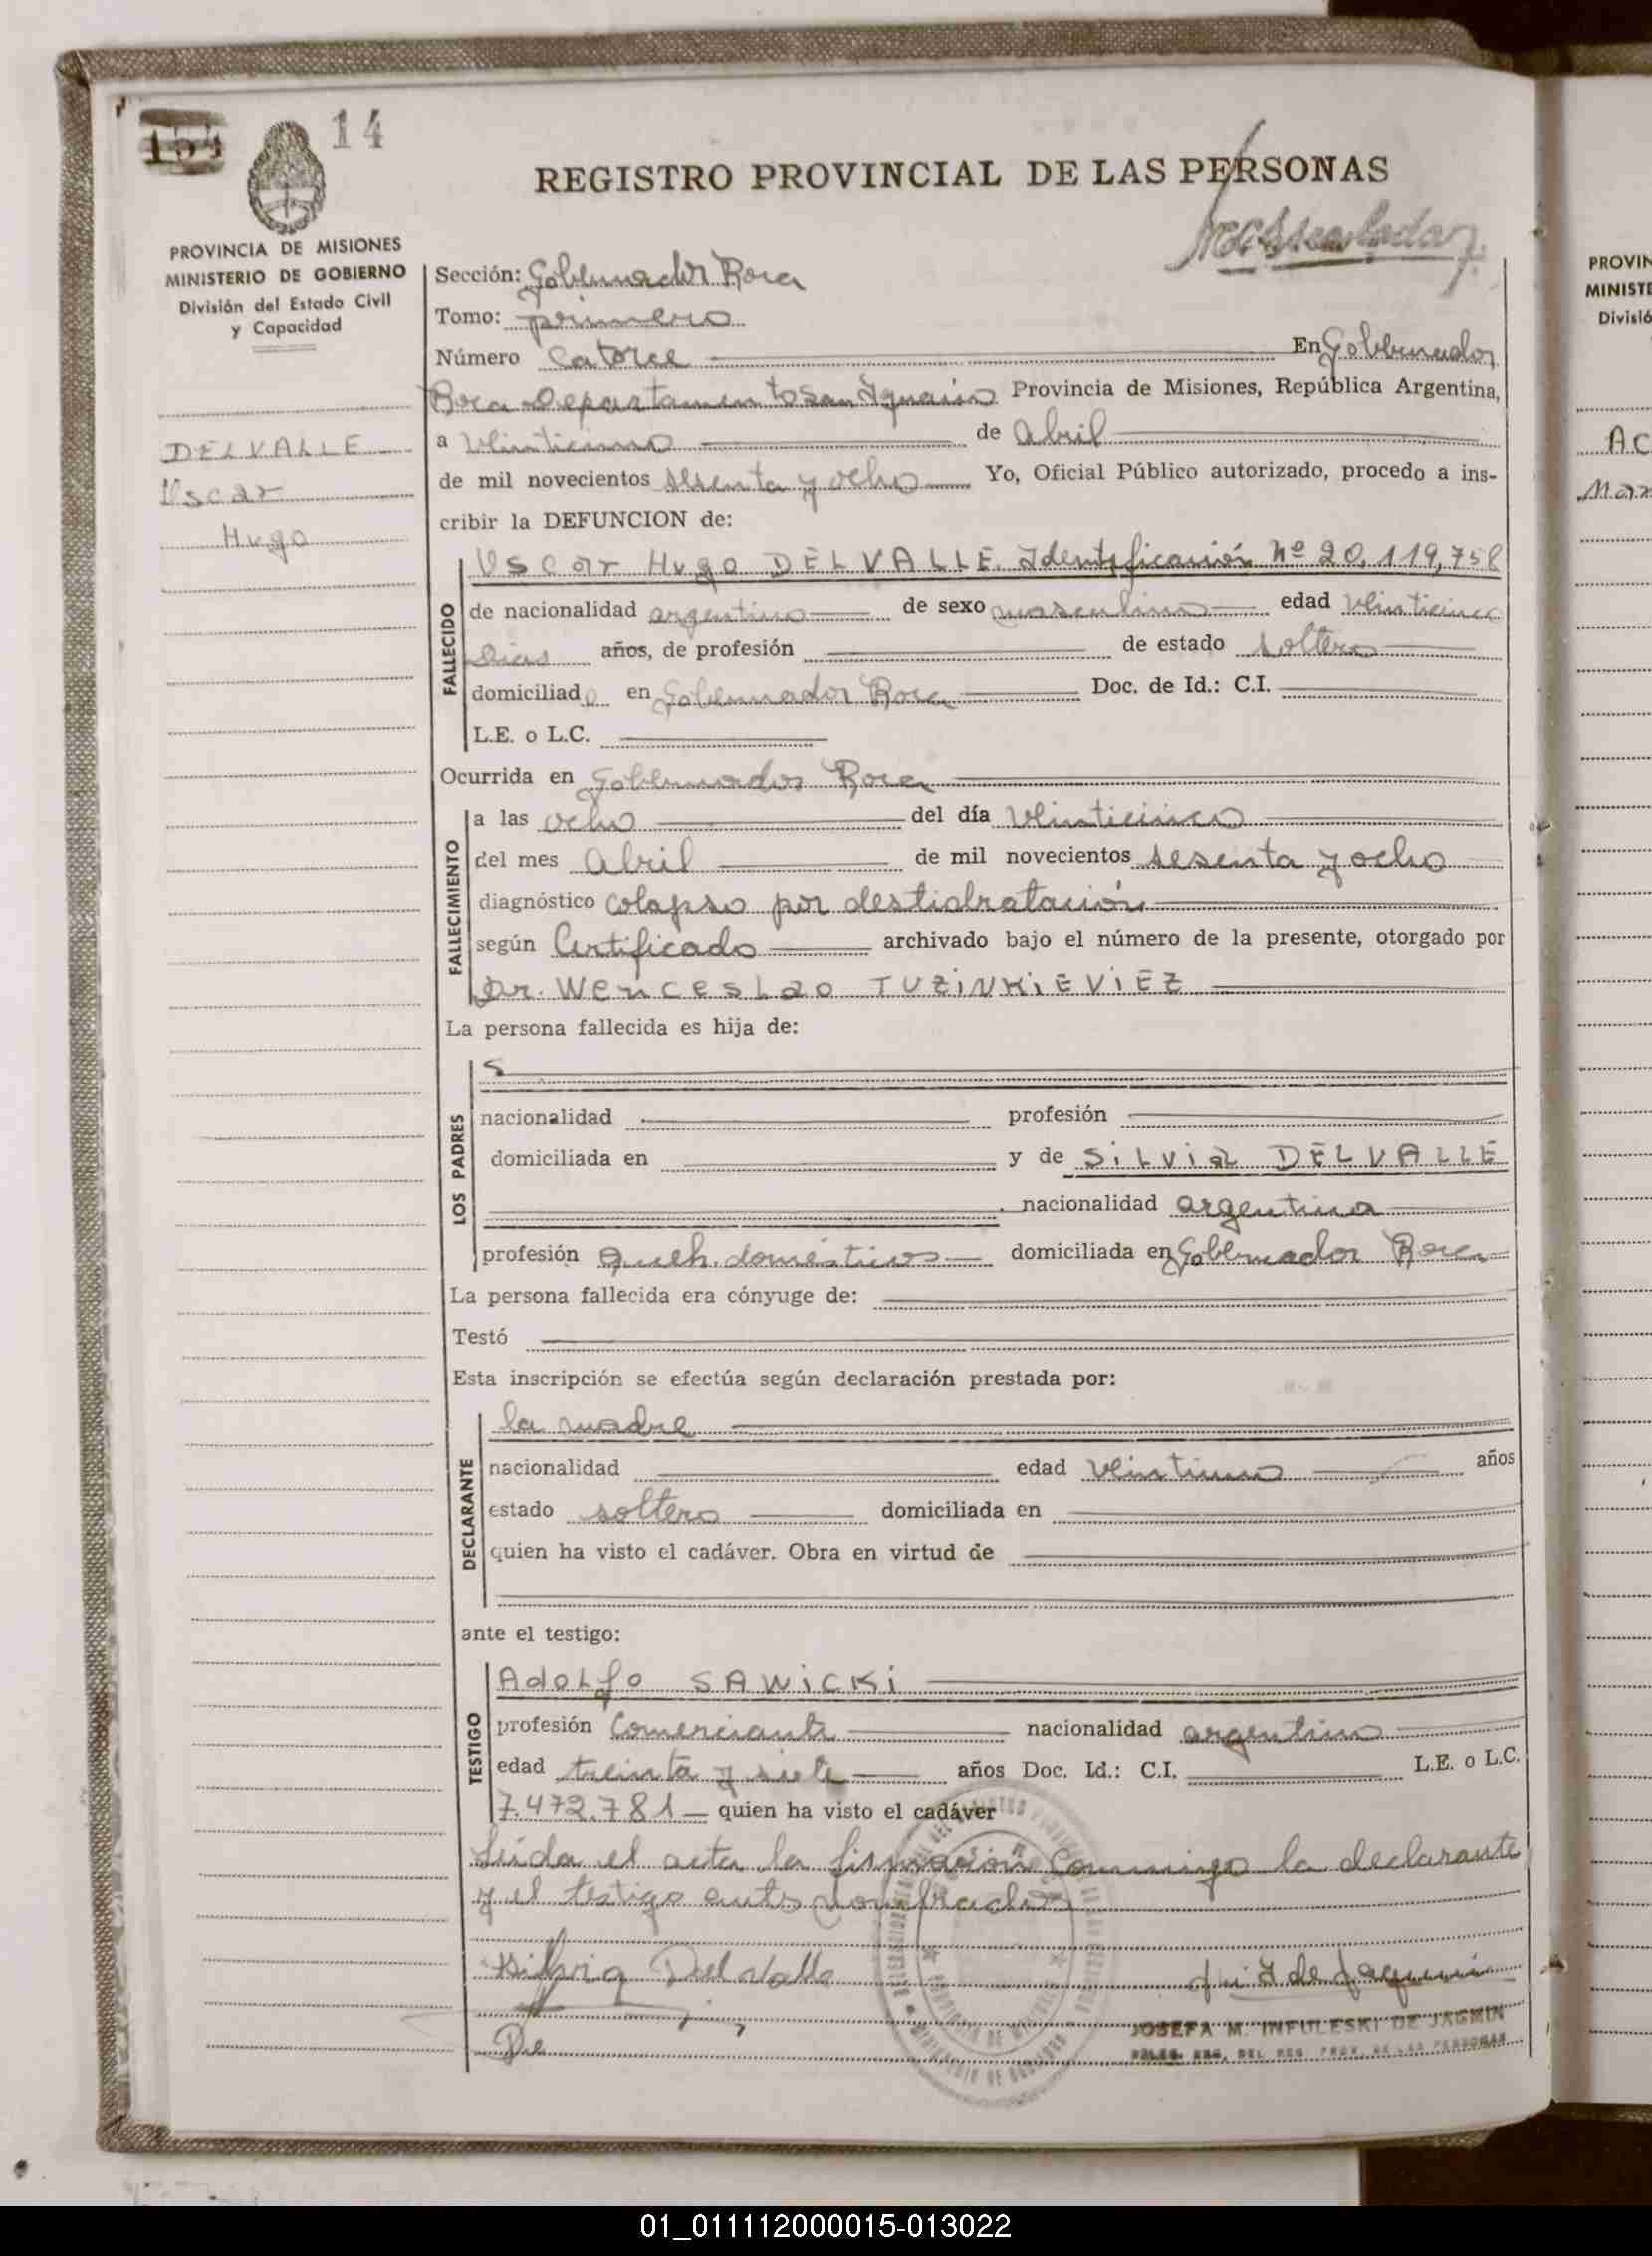 14
REGISTRO PROVINCIAL DE LAS PERSONAS
PROVINCIA DE MISIONES
MINISTERIO DE GOBIERNO
División del Estado Civil
y Capacidad
DELVALLE
Uscar
Hugo
Sección: Gobernador Roca
Tomo: primero
Número Catorce En Gobernador
Roca Departamento San Ignacio Provincia de Misiones, República Argentina,
a veinticinco de abril
de mil novecientos sesenta y ocho Yo, Oficial Público autorizado, procedo a ins-
cribir la DEFUNCION de:
FALLECIDO
Uscar Hugo DELVALLE. Identificación Nº 20,119,758
de nacionalidad argentino de sexo masculino edad veinticinco
dias años, de profesión de estado soltero
domiciliado en Gobernador Roca Doc. de Id.: C.I.
L.E. o L.C.
Ocurrida en Gobernador Roca
FALLECIMIENTO
a las ocho del día veinticinco
del mes Abril de mil novecientos sesenta y ocho
diagnóstico colapso por destidratación
según Certificado archivado bajo el número de la presente, otorgado por
Dr. Wenceslao TUZiNKiEViEZ
La persona fallecida es hija de:
LOS PADRES
nacionalidad profesión
domiciliada en y de SiLViA DELVALLE
nacionalidad argentina
profesión Queh. domésticos domiciliada en Gobernador Roca
La persona fallecida era cónyuge de:
Testó
Esta inscripción se efectúa según declaración prestada por:
DECLARANTE
la madre
nacionalidad edad años
estado soltera domiciliada en
quien ha visto el cadáver. Obra en virtud de
ante el testigo:
TESTIGO
Adolfo SAWiCKi
profesión Comerciante nacionalidad argentino
edad treinta y siete años Doc. Id.: C.I. L.E. o L.C.
7.472.781 quien ha visto el cadáver
Leida el acta la firmaron conmigo la declarante
y el testigo antes nombrados
Silvia Del Valle
JOSEFA M. INFULESKI DE JAGMIN
DELEG. REG. DEL REG. PROV. DE LAS PERSONAS
PROVIN
MINISTE
Divisió
AC
Mar
01_011112000015-013022